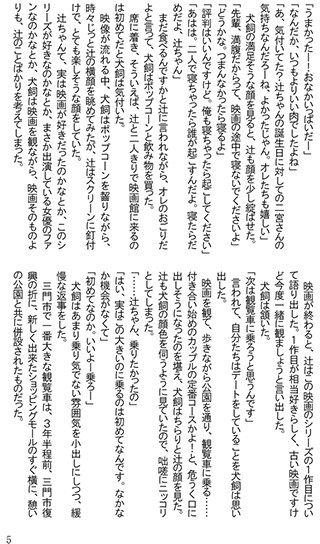 「うまかったー！おなかいっぱいだー」
「なんだか、いつもよりいい肉でしたよね」
「あ、気付いてた？辻ちゃんの誕生日に対しての二宮さんの
気持ちなんだろーね。よかったじゃん。オレたちも嬉しい」
犬飼の満足そうな顔を見ると、辻も顔を少し綻ばせた。
「先輩、満腹だからって、映画の途中で寝ないでくださいよ」
「どうかな。つまんなかったら寝るよ」
「評判はいいんですけど。俺も寝ちゃったら起こしてください」
「あはは。二人で寝ちゃったら誰が起こすんだよ。寝たらだ
めだよ、辻ちゃん」
まだ食べるんですかと辻に言われながら、オレのおごりだ
よと言って、犬飼はポップコーンと飲み物を買った。
席に着き、そういえば、辻と二人きりで映画館に来るの
は初めてだと犬飼は気付いた。
映像が流れる中、犬飼はポップコーンを齧りながら、
時々じっと辻の横顔を眺めてみたが、辻はスクリーンに釘付
けで、とても楽しそうな顔をしていた。
辻ちゃんて、実は映画が好きだったのかなとか、このシ
リーズが好きなのかなとか、まさか出演している女優のファ
ンなのかなとか、犬飼は映画を観ながら、映画そのものよ
りも、辻のことばかりを考えてしまった。
映画が終わると、辻はこの映画のシリーズの１作目につい
て語り出した。１作目が相当好きらしく、古い映画ですけ
ど今度一緒に観ましょうと言い出した。
犬飼は頷いた。
「次は観覧車に乗ろうと思うんです」
言われて、自分たちはデートをしていることを犬飼は思い
出した。
映画を観て、歩きながら公園を通り、観覧車に乗る……
付き合い始めのカップルの定番コースかよ！と、危うく口に
出しそうになったのを堪え、犬飼はちらりと辻の顔を見た。
辻も犬飼の顔色を伺うように見ていたので、咄嗟にニッコリ
としてしまった。
「……辻ちゃん、乗りたかったの」
「はい、実はこの大きいのに乗るのは初めてなんです。なかな
か機会がなくて」
「初めてなのか。いいよー乗ろー」
犬飼はあまり乗り気でない雰囲気を小出しにしつつ、緩
慢な返事をした。
三門市で一番大きな観覧車は、３年半程前、三門市復
興の折に、新しく出来たショッピングモールのすぐ横に、憩い
の公園と共に併設されたものだった。
5